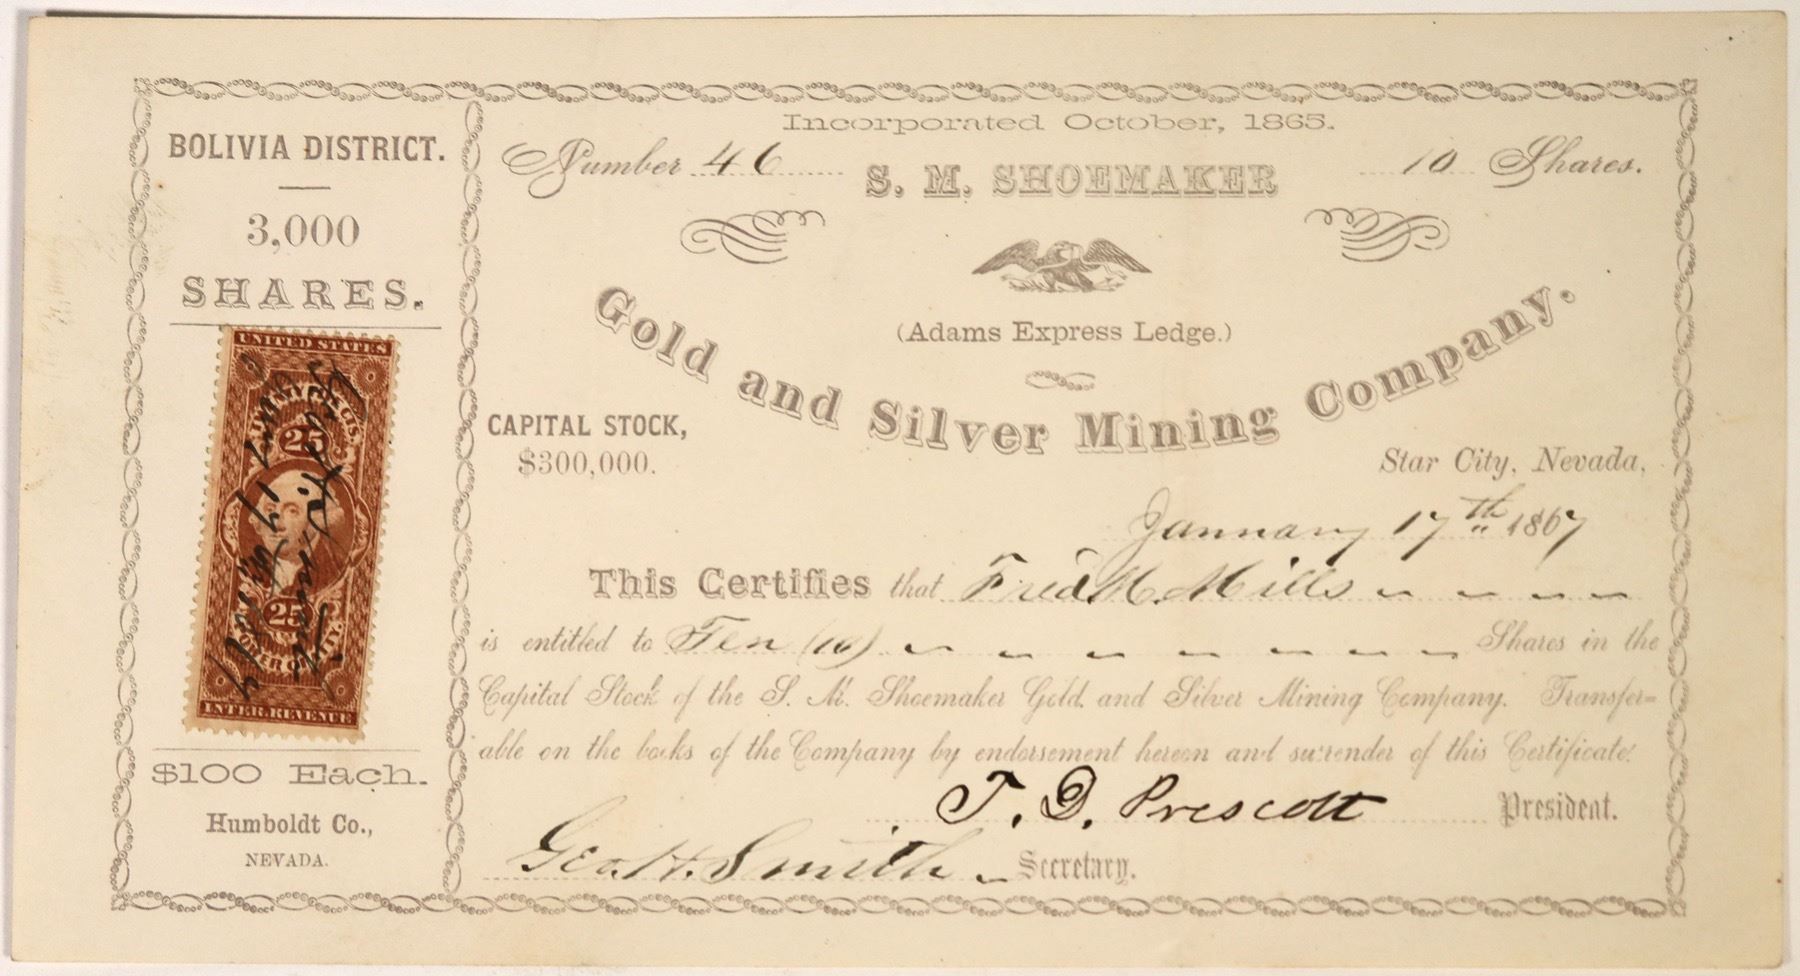 Incorporated October, 1865.
Number 46
10 Shares.
S. M. SHOEMAKER
(Adams Express Ledge.)
Gold and Silver Mining Company.
CAPITAL STOCK,
$300,000.
Star City, Nevada,
January 17th 1867
This Certifies that Fred. M. Mills
is entitled to Ten (10) Shares in the
Capital Stock of the S. M. Shoemaker Gold and Silver Mining Company. Transfer=
able on the books of the Company by endorsement hereon and surrender of this Certificate.
T. D. Prescott President.
Geo. H. Smith Secretary.
BOLIVIA DISTRICT.
3,000
SHARES.
UNITED STATES
25
25
POWER OF ATTY.
INTER. REVENUE
$100 Each.
Humboldt Co.,
NEVADA.